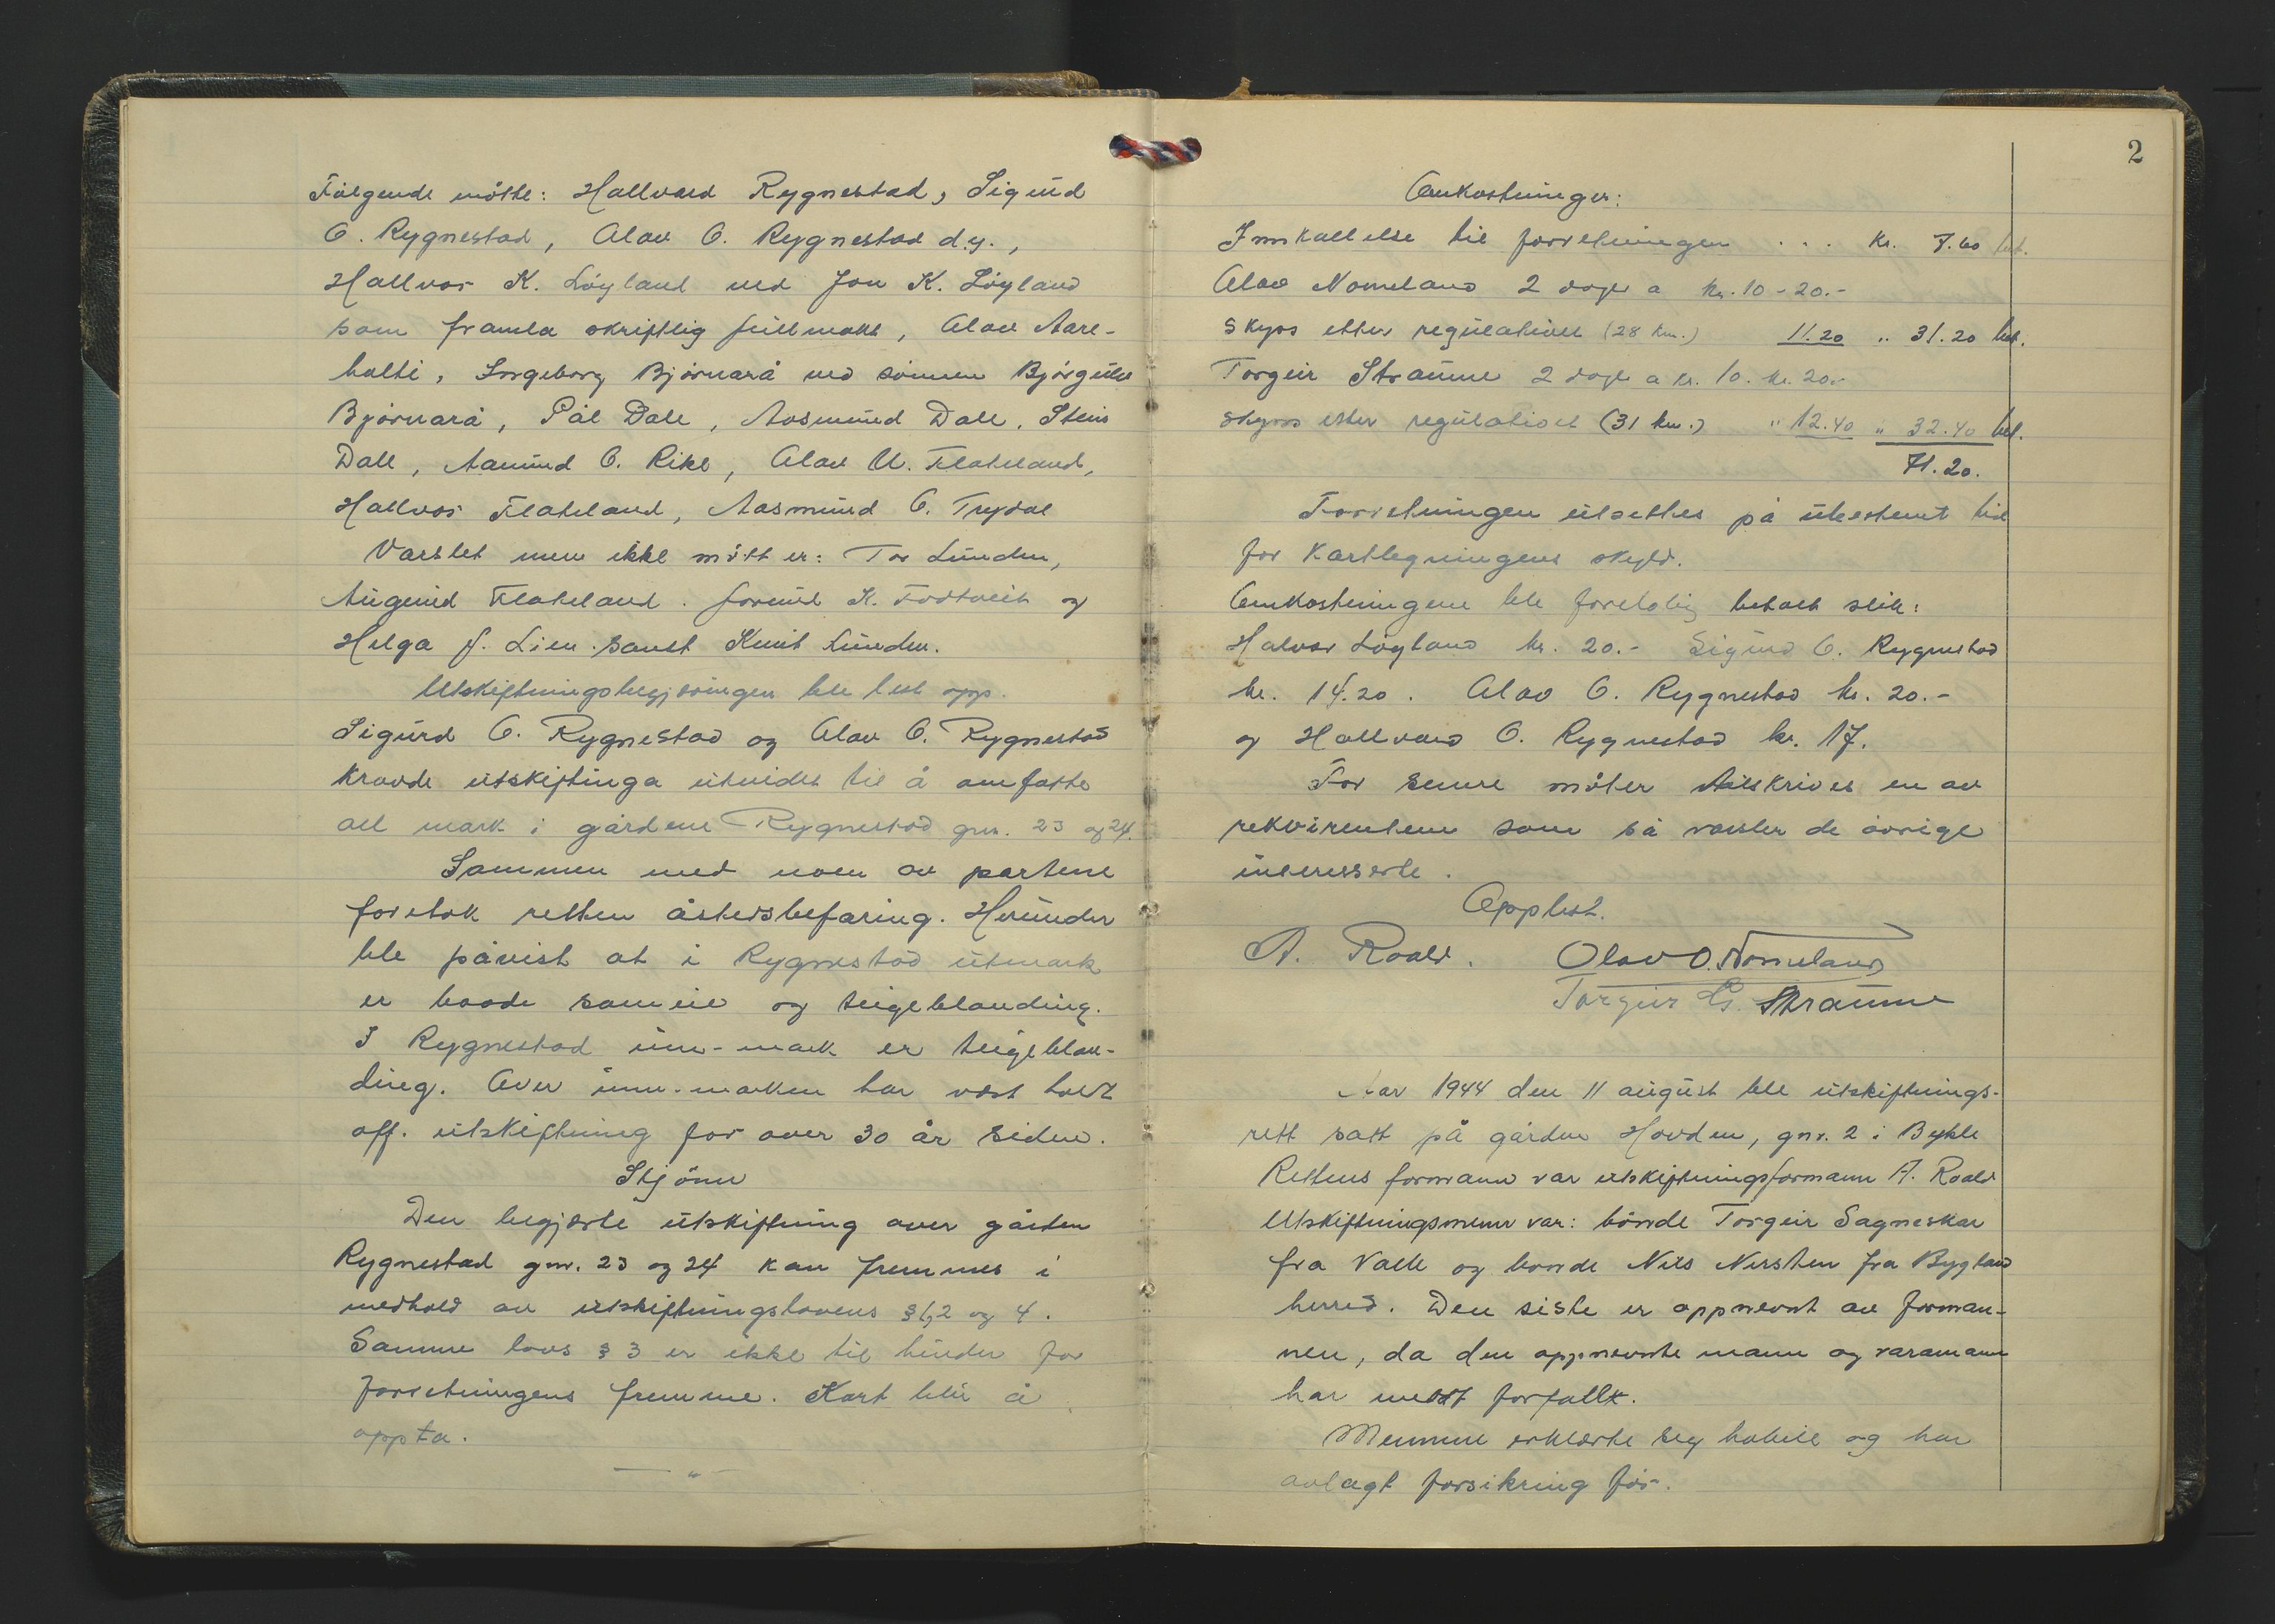 Følgende møtte: Hallvard Rygnestad, Sigurd
O. Rygnestad, Olav O. Rygnestad d.y.,
Hallvor K. Løyland ved Jon K. Løyland
som framla skriftlig fullmakt, Olav Aare-
holti, Ingeborg Bjørnarå ved sønnen Bjørgulv
Bjørnarå, Pål Dale, Aasmund Dale, Stein
Dale, Aanund O. Rike, Olav U. Flateland,
Hallvor Flateland, Aasmund O. Trydal
Varslet men ikke møtt er: Tor Lunden,
Augund Flateland. formål K. Fodtveit og
Helga J. Lien. samt Knut Lunden.
Utskiftningsbegjæringen ble lest opp.
Sigurd O. Rygnestad og Olav O. Rygnestad
kravde utskiftinga utvidet til å omfatte
all mark i gårdene Rygnestad gnr. 23 og 24.
Sammen med noen av partene
foretok retten åstedsbefaring. Herunder
ble påvist at i Rygnestad utmark
er baade sameie og teigeblanding.
I Rygnestad inn-mark er teigeblan-
ding. Over inn-marken har vært holdt
off. utskiftning for over 30 år siden.
Skjønn
Den begjærte utskiftning over gården
Rygnestad gnr. 23 og 24 kan fremmes i
medhold av utskiftningslovens § 1, 2 og 4.
Samme lovs § 3 er ikke til hinder for
forretningens fremme. Kart blir å
oppta.
— " —
2
Omkostninger:
Innkallelse til forretningen . . . kr. 7.60 bet.
Olav Nomeland 2 dager a kr. 10 - 20.-
Skyss etter regulativet (28 km.) 11.20 " 31.20 bet.
Torgeir Straume 2 dager a kr. 10. kr. 20.-
Skyss etter regulativet (31 km.) " 12.40 " 32.40 bet.
71.20.
Forretningen utsettes på ubestemt tid
for kartlegningens skyld.
Omkostningene ble foreløbig betalt slik:
Halvor Løyland kr. 20.- Sigurd O. Rygnestad
kr. 14.20. Olav O. Rygnestad kr. 20.-
og Hallvard O. Rygnestad kr. 17.
For senere møter tilskrives en av
rekvirentene som så varsler de øvrige
interesserte.
Opplest.
A. Roald. Olav O. Nomeland
Torgeir G. Straume
Aar 1944 den 11 august ble utskiftnings-
rett satt på gården Hovden, gnr. 2 i Bykle
Rettens formann var utskiftningsformann A. Roald
Utskiftningsmenn var: bonde Torgeir Sagneskar
fra Valle og bonde Nils Nersten fra Bygland
herred. Den siste er oppnevnt av forman-
nen, da den oppnevnte mann og varamann
har meldt forfall.
Mennene erklærte seg habile og har
avlagt forsikring før.